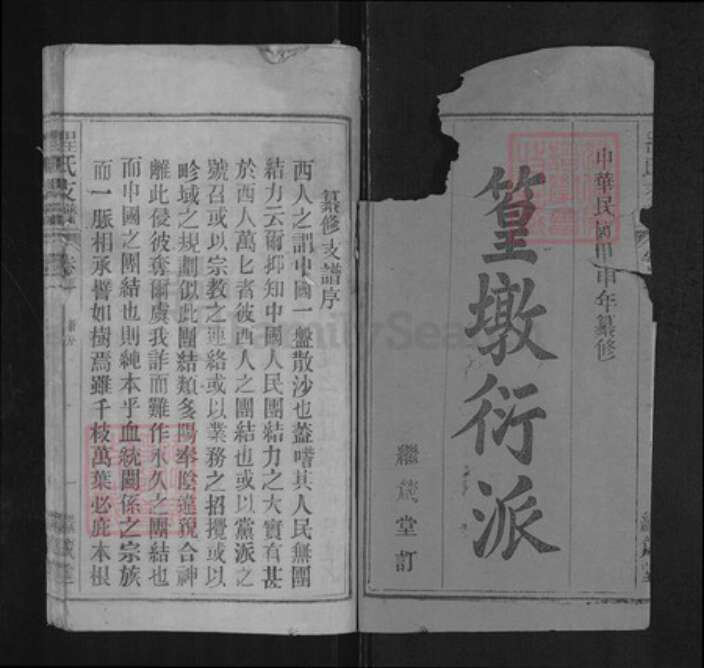 中華民國甲申年纂修
篁墩衍派
繼歲堂訂
纂修支譜序
西人之謂中國一盤散沙也蓋嗤其人民無團
結力云爾抑知中國人民團結力之大實有甚
於西人萬匕者彼西人之團結也或以黨派之
號召或以宗教之連絡或以業務之招攬或以
畛域之規劃似此團結類多陽奉陰違貌合神
離此侵彼奪爾虞我詐而難作永久之團結也
而中國之團結也則純本乎血統關係之宗族
而一脈相承譬如樹焉雖千枝萬葉必庇本根
程氏支譜